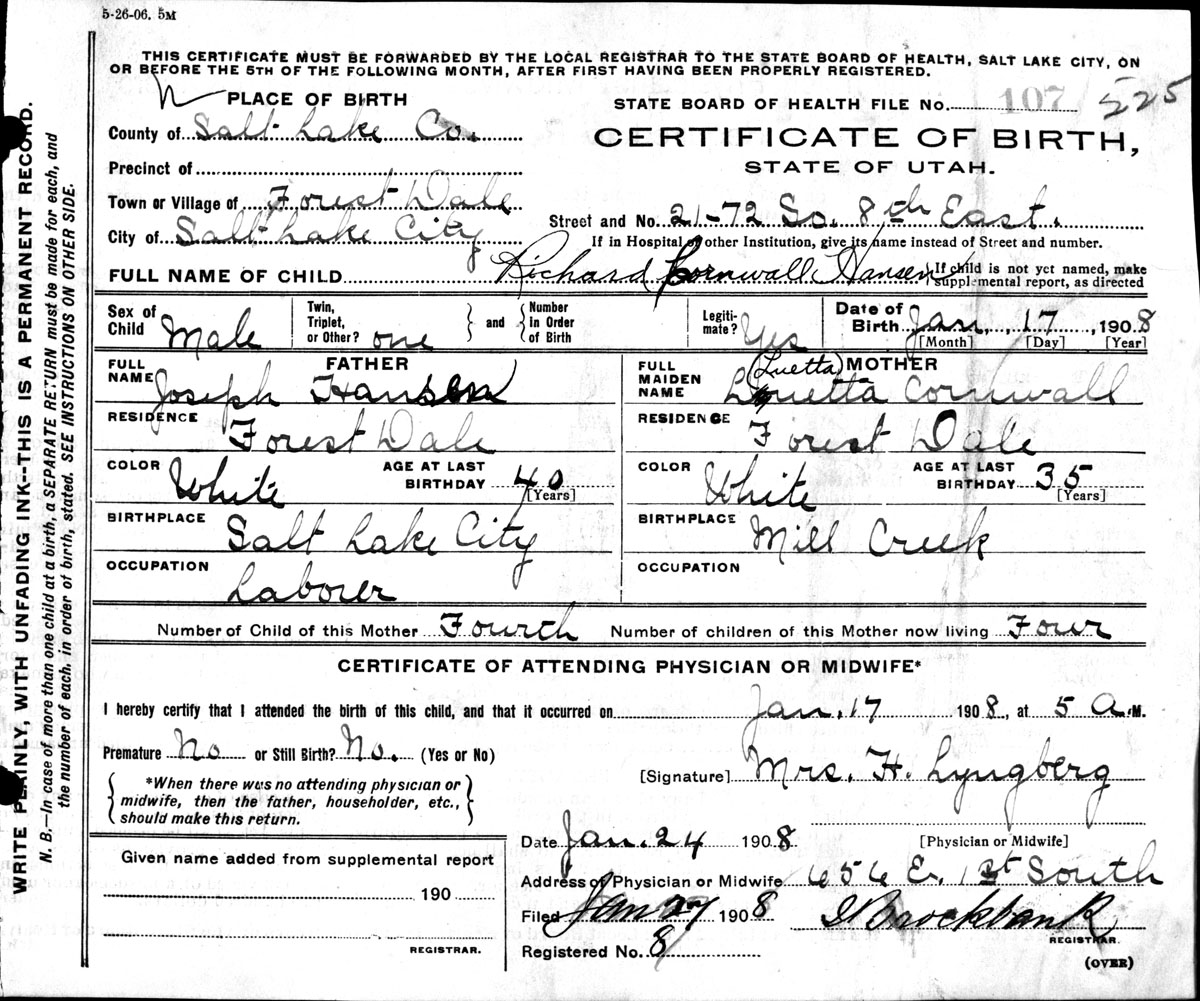 5-26-06. 5M
THIS CERTIFICATE MUST BE FORWARDED BY THE LOCAL REGISTRAR TO THE STATE BOARD OF HEALTH, SALT LAKE CITY, ON
OR BEFORE THE 5TH OF THE FOLLOWING MONTH, AFTER FIRST HAVING BEEN PROPERLY REGISTERED.
PLACE OF BIRTH
STATE BOARD OF HEALTH FILE No. 107 225
County of Salt Lake Co.
CERTIFICATE OF BIRTH,
STATE OF UTAH.
Precinct of
Town or Village of Forest Dale
Street and No. 21-72 So. 8th East.
City of Salt Lake City
If in Hospital or other Institution, give its name instead of Street and number.
FULL NAME OF CHILD Richard Cornwall Hansen
{If child is not yet named, make
supplemental report, as directed
Sex of Child Male
Twin, Triplet, or Other? one } and { Number in Order of Birth
Legiti-mate? Yes
Date of Birth Jan. 17, 1908
[Month] [Day] [Year]
FATHER
FULL NAME Joseph Hansen
MOTHER
(Luetta)
FULL MAIDEN NAME Luetta Cornwall
RESIDENCE Forest Dale
RESIDENCE Forest Dale
COLOR White AGE AT LAST BIRTHDAY 40 [Years]
COLOR White AGE AT LAST BIRTHDAY 35 [Years]
BIRTHPLACE Salt Lake City
BIRTHPLACE Mill Creek
OCCUPATION Laborer
OCCUPATION
Number of Child of this Mother Fourth Number of children of this Mother now living Four
CERTIFICATE OF ATTENDING PHYSICIAN OR MIDWIFE*
I hereby certify that I attended the birth of this child, and that it occurred on Jan. 17 1908, at 5 A.M.
Premature No or Still Birth? No. (Yes or No)
[Signature] Mrs. H. Lyngberg
{*When there was no attending physician or
midwife, then the father, householder, etc.,
should make this return.}
[Physician or Midwife]
Date Jan. 24 1908
Given name added from supplemental report
Address of Physician or Midwife 656 E. 1st South
190
Filed Jan 27 1908 Brockbank
REGISTRAR.
REGISTRAR.
Registered No. 8
(OVER)
WRITE PLAINLY, WITH UNFADING INK--THIS IS A PERMANENT RECORD.
N. B.—In case of more than one child at a birth, a SEPARATE RETURN must be made for each, and
the number of each, in order of birth, stated. SEE INSTRUCTIONS ON OTHER SIDE.